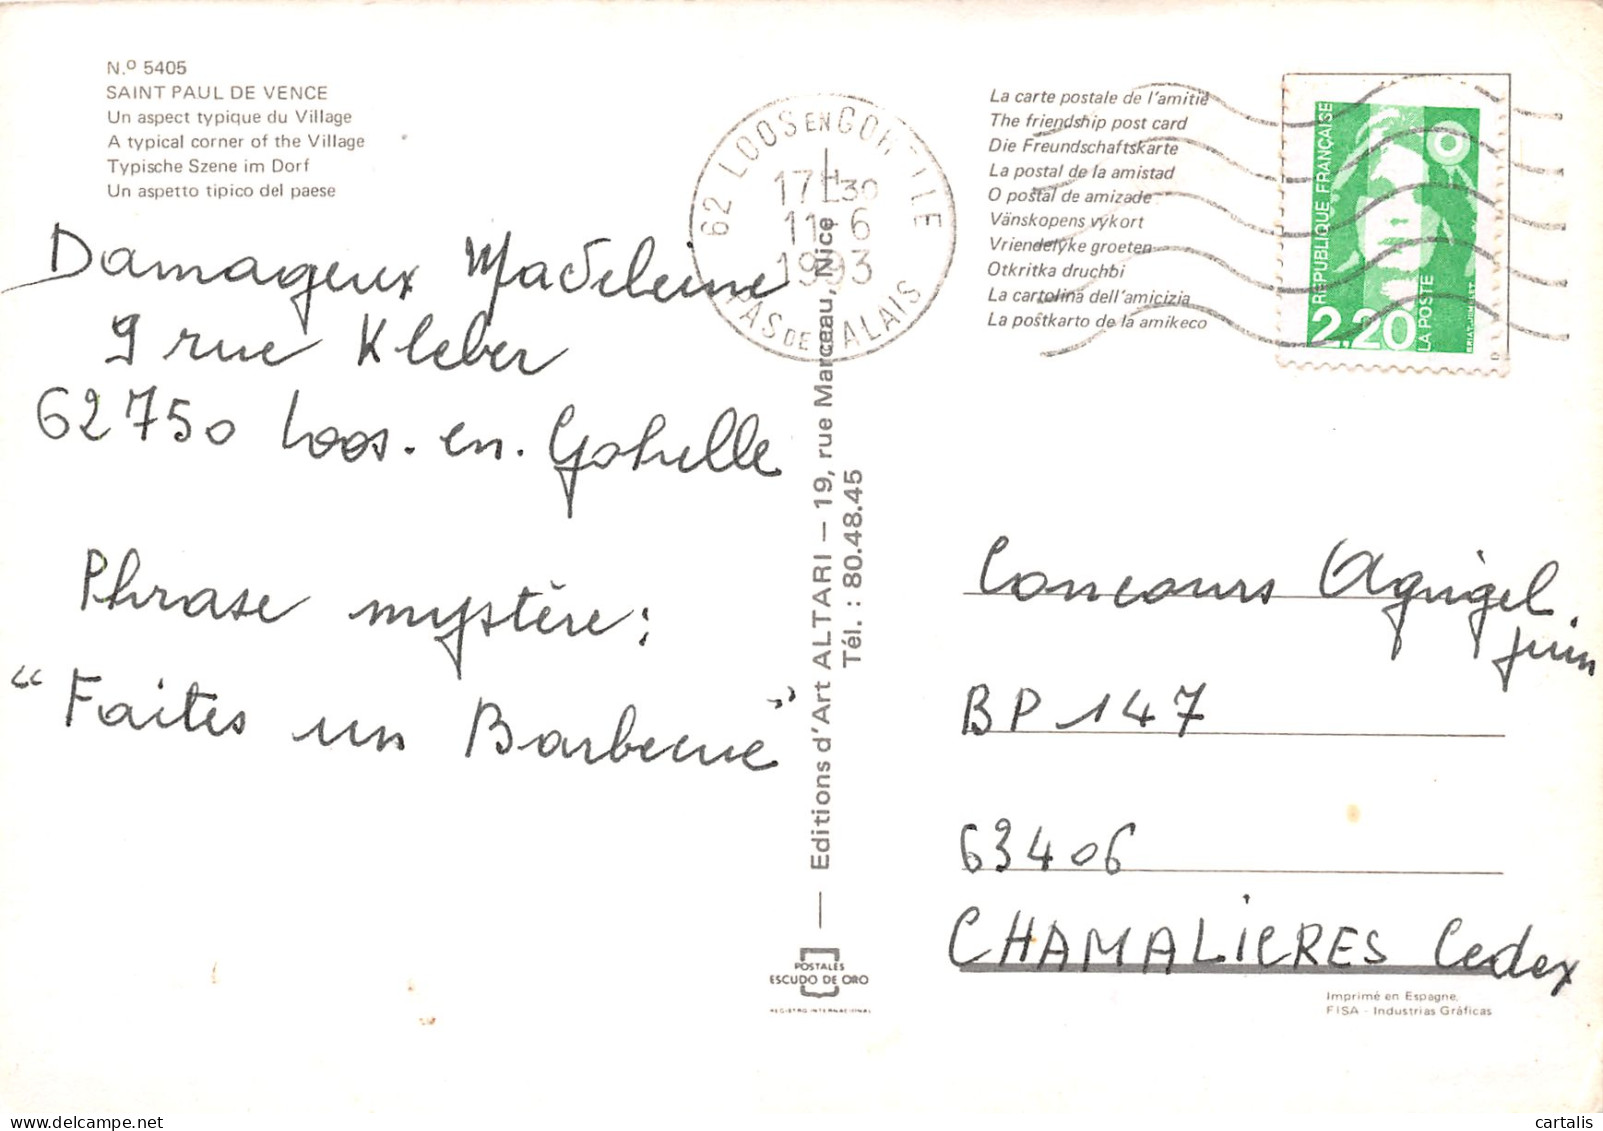 N.º 5405
SAINT PAUL DE VENCE
Un aspect typique du Village
A typical corner of the Village
Typische Szene im Dorf
Un aspetto tipico del paese
Damageux Madeleine
9 rue Kleber
62750 Loos-en-Gohelle
Phrase mystère :
"Faites un Barbecue"
62 LOOS EN GOHELLE
17H30
11-6
1993
PAS DE CALAIS
Editions d'Art ALTARI — 19, rue Marceau, Nice
Tél. : 80.48.45
POSTALES
ESCUDO DE ORO
REGISTRO INTERNACIONAL
La carte postale de l'amitié
The friendship post card
Die Freundschaftskarte
La postal de la amistad
O postal de amizade
Vänskopens vykort
Vriendelyke groeten
Otkritka druchbi
La cartolina dell'amicizia
La postkarto de la amikeco
REPUBLIQUE FRANÇAISE
2,20
LA POSTE
Concours Agrigel
juin
BP 147
63406
CHAMALIERES Cedex
Imprimé en Espagne
FISA - Industrias Gráficas
cartalis
www.delcampe.net